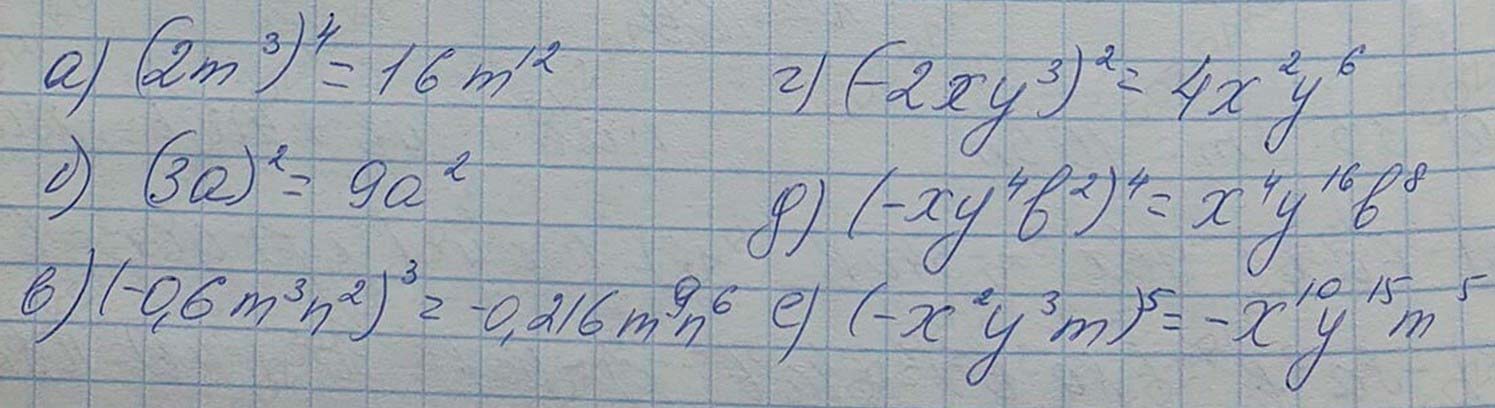 а) (2m³)⁴ = 16m¹²
б) (3a)² = 9a²
в) (-0,6m³n²)³ = -0,216m⁹n⁶
г) (-2xy³)² = 4x²y⁶
д) (-xy⁴b²)⁴ = x⁴y¹⁶b⁸
е) (-x²y³m)⁵ = -x¹⁰y¹⁵m⁵